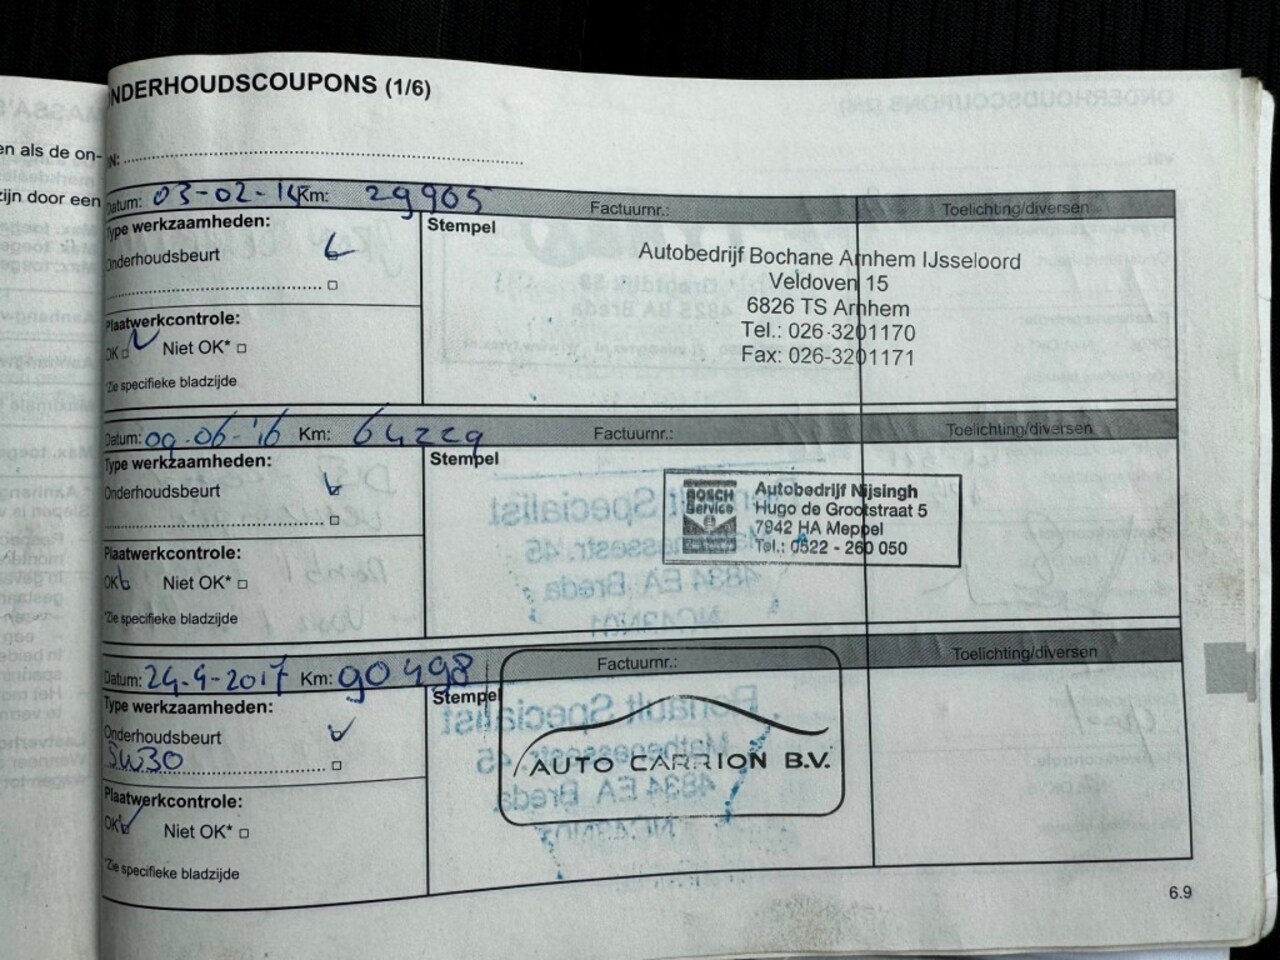 NDERHOUDSCOUPONS (1/6)
en als de on-
N:
zijn door een
Datum: 03-02-15 Km: 29965 Factuurnr.: Toelichting/diversen
Type werkzaamheden:
Stempel
Onderhoudsbeurt
Autobedrijf Bochane Arnhem IJsseloord
Veldoven 15
6826 TS Arnhem
Tel.: 026-3201170
Fax: 026-3201171
Plaatwerkcontrole:
OK Niet OK*
*Zie specifieke bladzijde
Datum: 09-06-'16 Km: 64229 Factuurnr.: Toelichting/diversen
Type werkzaamheden:
Stempel
Onderhoudsbeurt
BOSCH
Service
Autobedrijf Nijsingh
Hugo de Grootstraat 5
7942 HA Meppel
Tel.: 0522 - 260 050
Plaatwerkcontrole:
OK Niet OK*
*Zie specifieke bladzijde
Datum: 24-4-2017 Km: 90498 Factuurnr.: Toelichting/diversen
Type werkzaamheden:
Stempel
Onderhoudsbeurt
5W30
AUTO CARRION B.V.
Plaatwerkcontrole:
OK Niet OK*
*Zie specifieke bladzijde
6.9